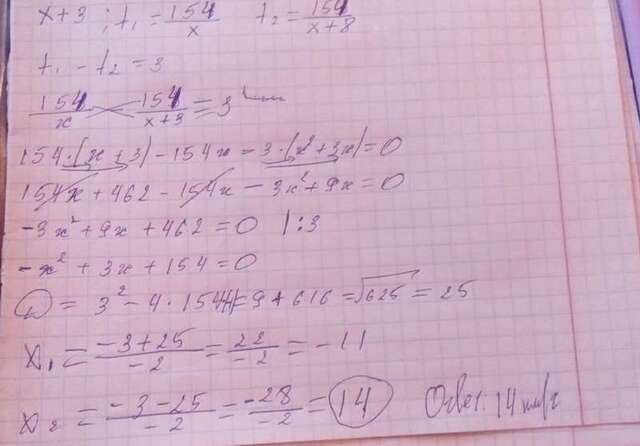 x+3 ; t₁ = 154/x t₂ = 154/x+8
t₁ - t₂ = 3
154/x - 154/x+3 = 3
154·(x+3) - 154x - 3·(x²+3x) = 0
154x + 462 - 154x - 3x² + 9x = 0
-3x² + 9x + 462 = 0 |:3
-x² + 3x + 154 = 0
D = 3² - 4·154 = 9 + 616 = √625 = 25
x₁ = -3+25/-2 = 22/-2 = -11
x₂ = -3-25/-2 = -28/-2 = 14 Ответ: 14 км/ч